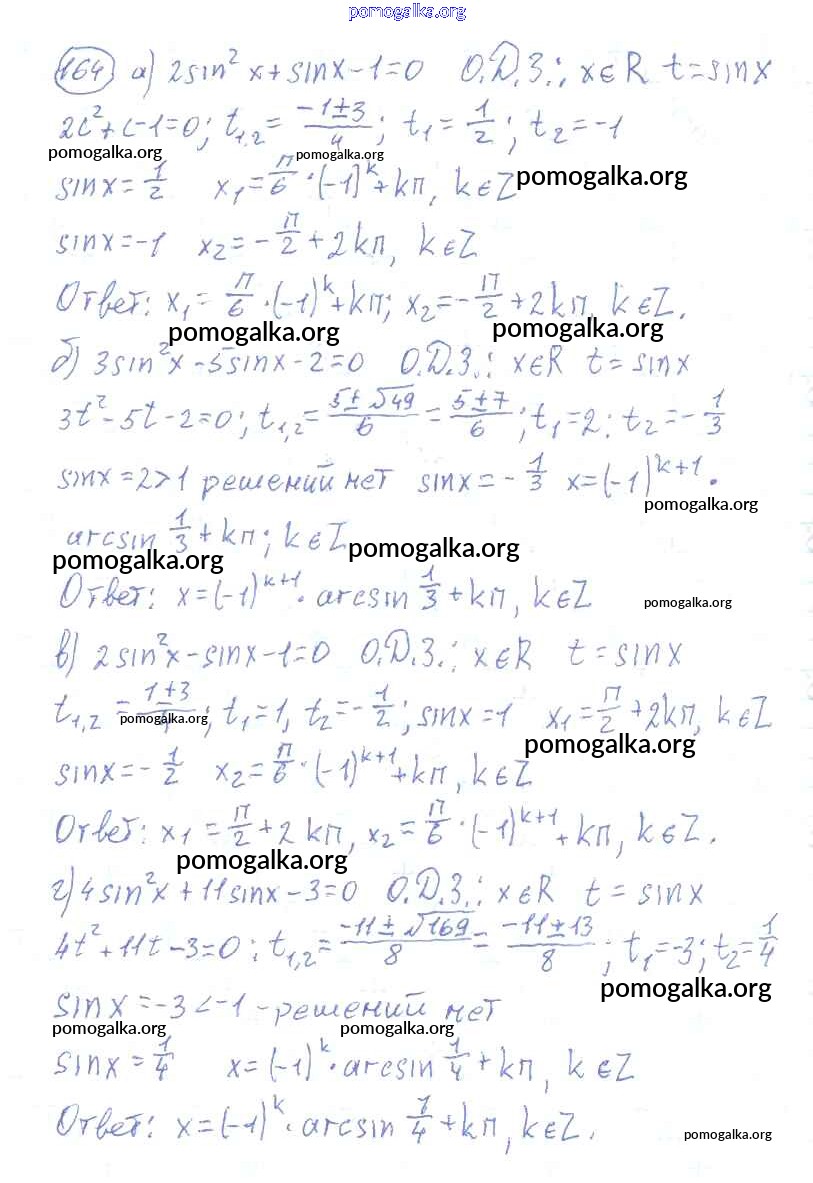 pomogalka.org
164 а) 2sin² x + sinx - 1 = 0 О.Д.З.: x∈R t = sinx
2t² + t - 1 = 0; t₁,₂ = (-1±3)/4; t₁ = 1/2; t₂ = -1
pomogalka.org pomogalka.org
sinx = 1/2 x₁ = π/6 · (-1)^k + kπ, k∈Z pomogalka.org
sinx = -1 x₂ = -π/2 + 2kπ, k∈Z
Ответ: x₁ = π/6 · (-1)^k + kπ; x₂ = -π/2 + 2kπ, k∈Z.
pomogalka.org pomogalka.org
б) 3sin²x - 5sinx - 2 = 0 О.Д.З.: x∈R t = sinx
3t² - 5t - 2 = 0; t₁,₂ = (5±√49)/6 = (5±7)/6; t₁ = 2; t₂ = -1/3
sinx = 2 > 1 решений нет sinx = -1/3 x = (-1)^(k+1) ·
pomogalka.org
arcsin 1/3 + kπ; k∈Z
pomogalka.org pomogalka.org
Ответ: x = (-1)^(k+1) · arcsin 1/3 + kπ, k∈Z pomogalka.org
в) 2sin²x - sinx - 1 = 0 О.Д.З.: x∈R t = sinx
t₁,₂ = (1±3)/4; t₁ = 1, t₂ = -1/2; sinx = 1 x₁ = π/2 + 2kπ, k∈Z
pomogalka.org pomogalka.org
sinx = -1/2 x₂ = π/6 · (-1)^(k+1) + kπ, k∈Z
Ответ: x₁ = π/2 + 2kπ, x₂ = π/6 · (-1)^(k+1) + kπ, k∈Z.
pomogalka.org
г) 4sin²x + 11sinx - 3 = 0 О.Д.З.: x∈R t = sinx
4t² + 11t - 3 = 0; t₁,₂ = (-11±√169)/8 = (-11±13)/8; t₁ = -3; t₂ = 1/4
pomogalka.org
sinx = -3 < -1 - решений нет
pomogalka.org pomogalka.org
sinx = 1/4 x = (-1)^k · arcsin 1/4 + kπ, k∈Z
Ответ: x = (-1)^k · arcsin 1/4 + kπ, k∈Z.
pomogalka.org